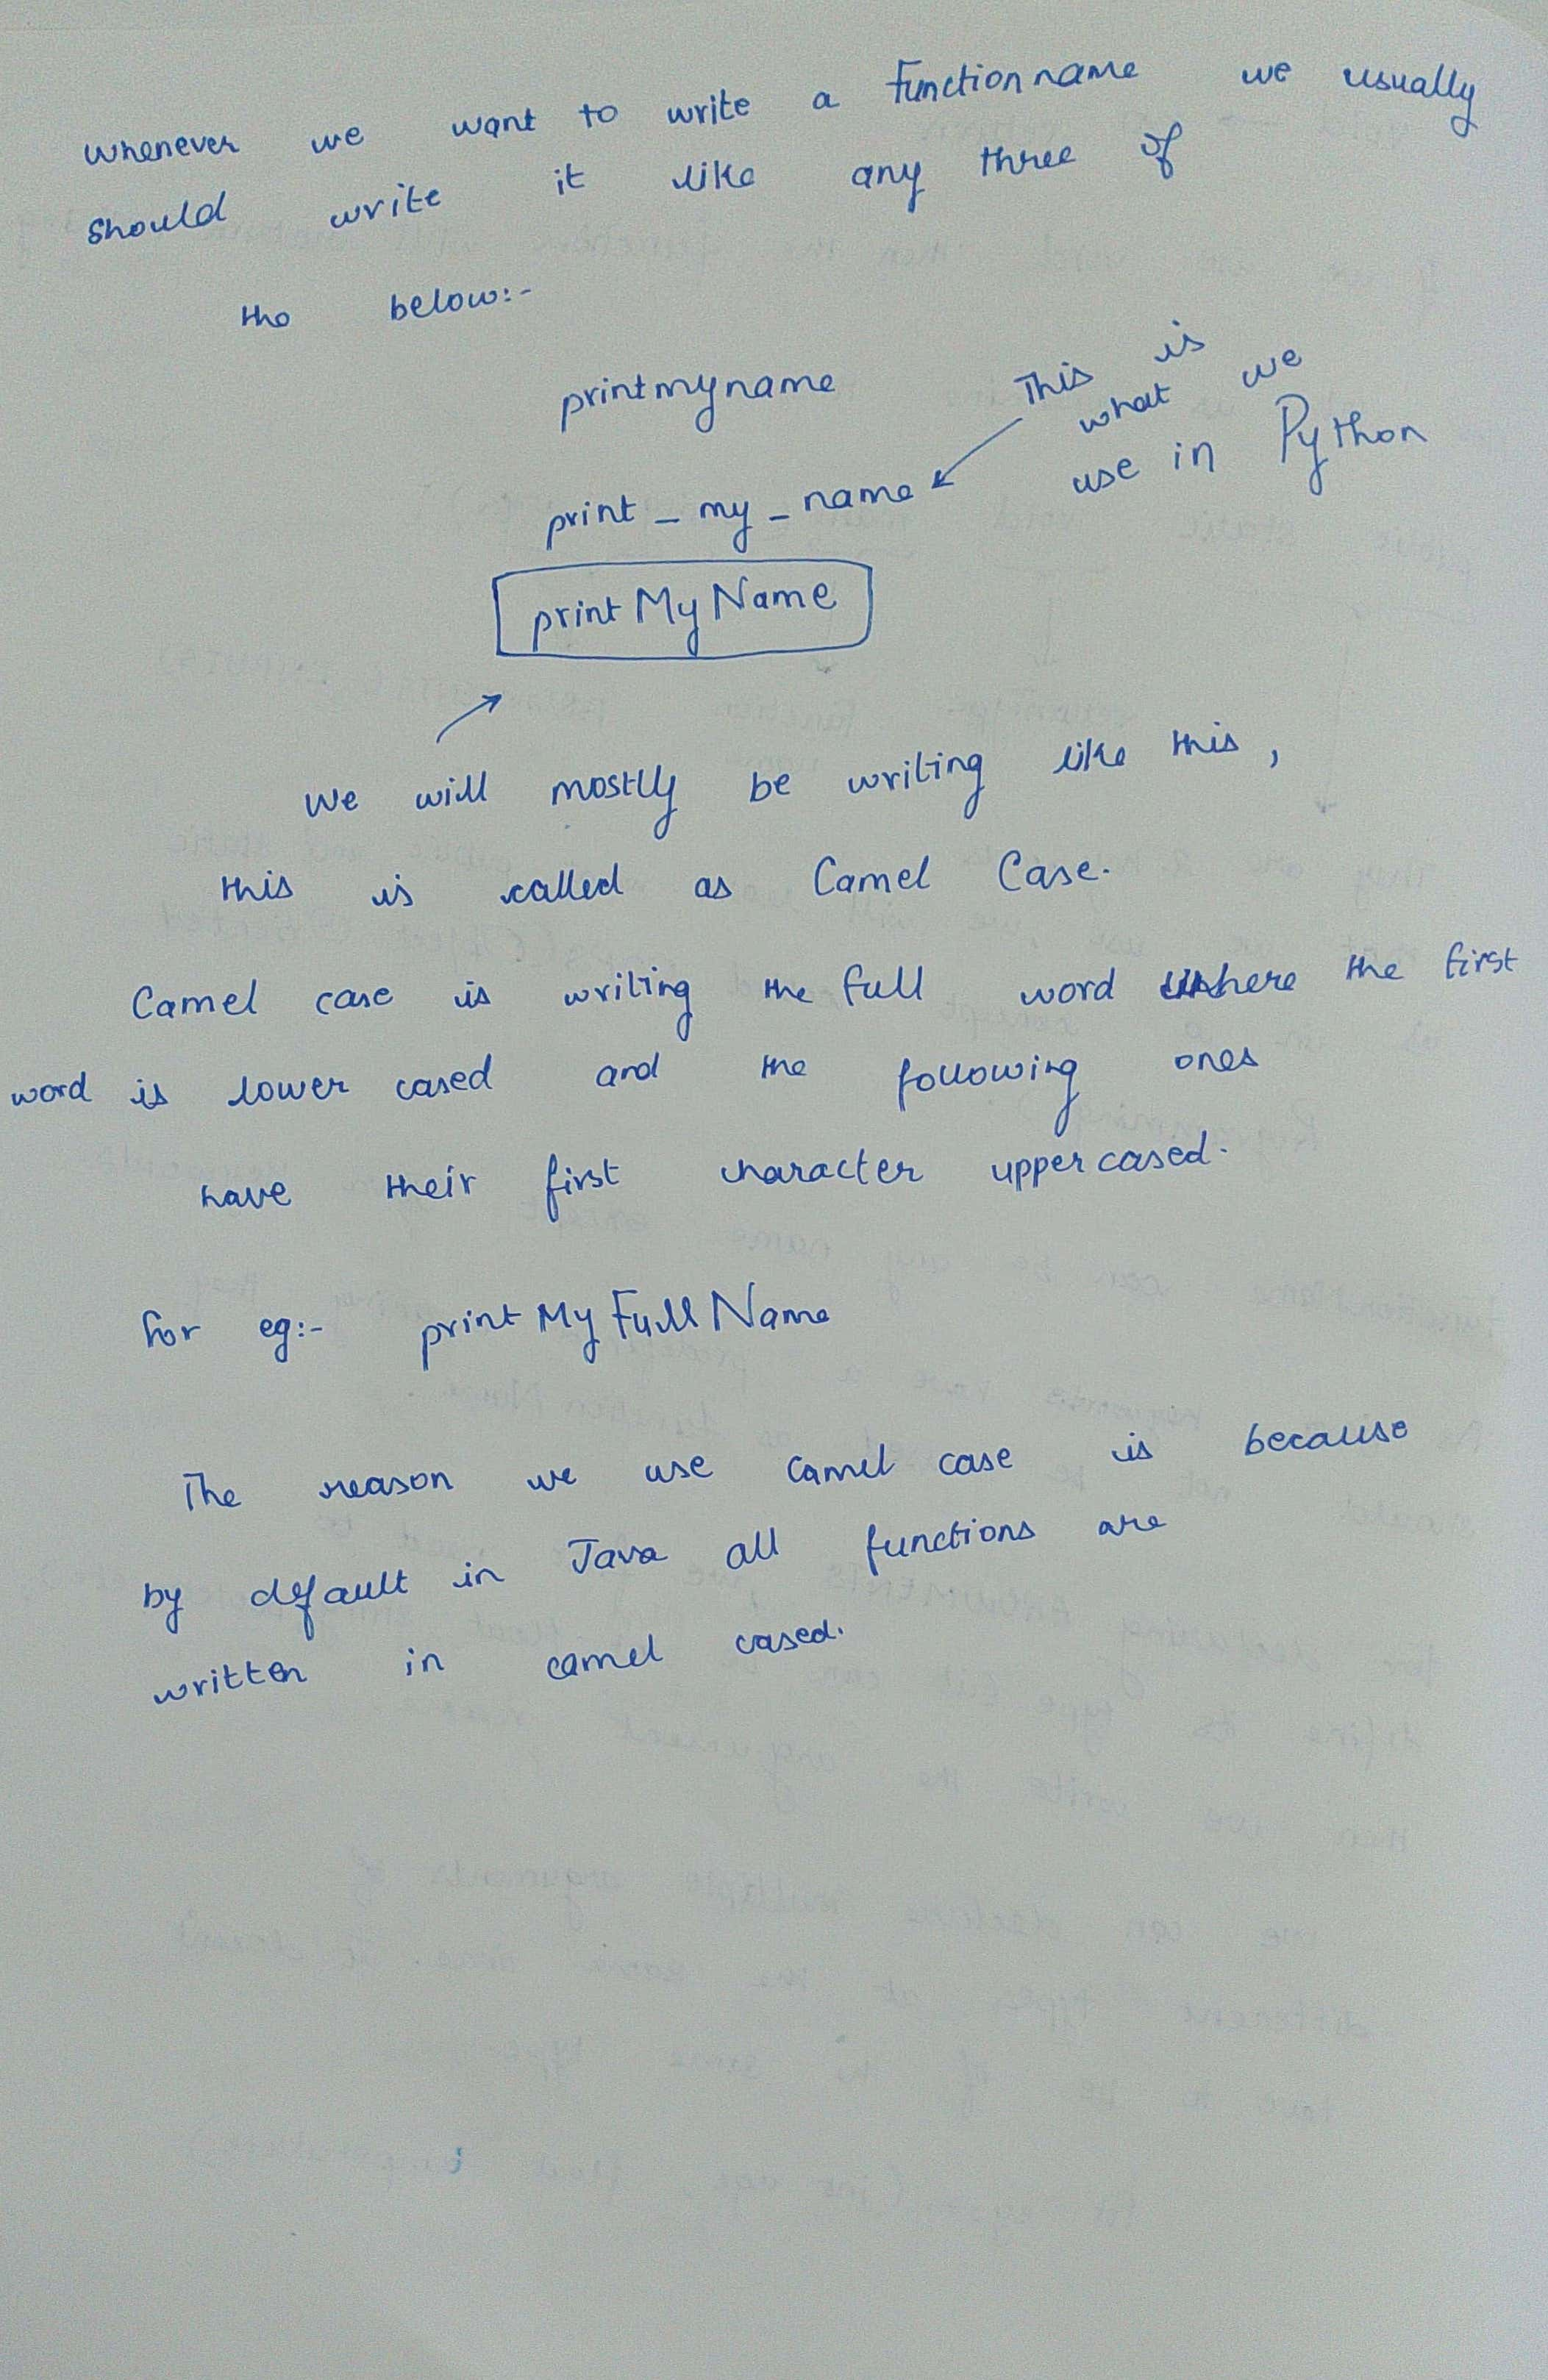 whenever we want to write a function name we usually
should write it like any three of
the below:-
printmyname
This is
what we
use in Python
print_my_name
printMyName
We will mostly be writing like this,
this is called as Camel Case.
Camel case is writing the full word where the first
word is lower cased and the following ones
have their first character upper cased.
for eg:- printMyFullName
The reason we use camel case is because
by default in Java all functions are
written in camel cased.